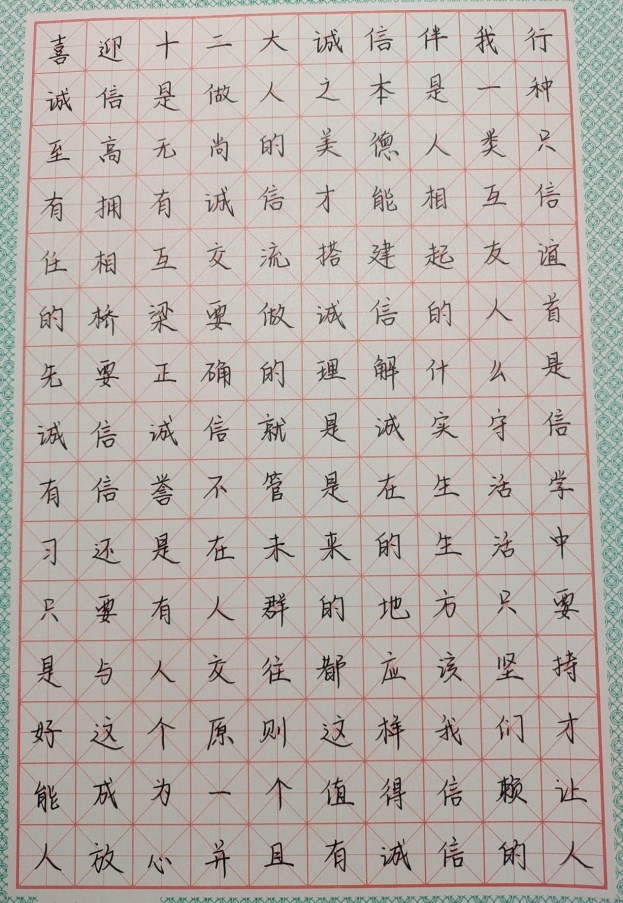 喜迎十二大诚信伴我行
诚信是做人之本是一种
至高无尚的美德人类只
有拥有诚信才能相互信
任相互交流搭建起友谊
的桥梁要做诚信的人首
先要正确的理解什么是
诚信诚信就是诚实守信
有信誉不管是在生活学
习还是在未来的生活中
只要有人群的地方只要
是与人交往都应该坚持
好这个原则这样我们才
能成为一个值得信赖让
人放心并且有诚信的人